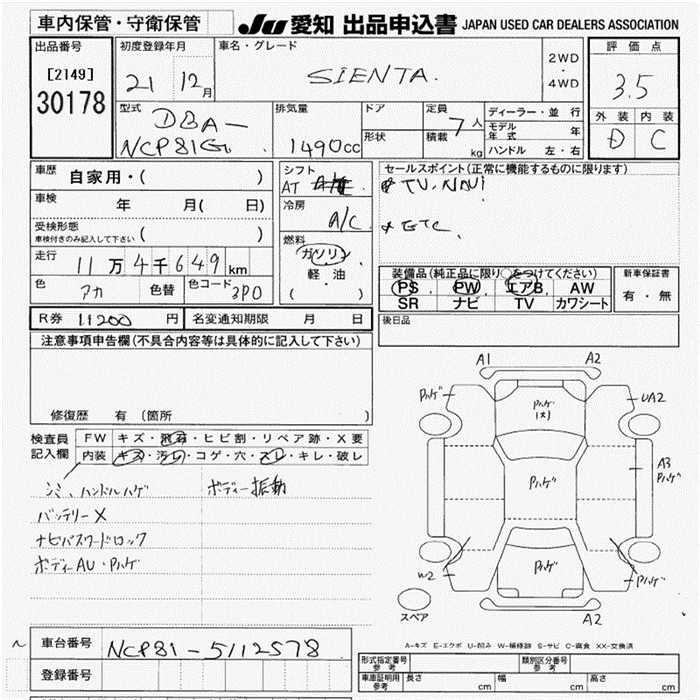 車内保管・守衛保管
JU 愛知 出品申込書 JAPAN USED CAR DEALERS ASSOCIATION
出品番号
[2149]
30178
初度登録年月
21 12月
車名・グレード
SIENTA.
2WD
・
4WD
評価点
3.5
外装 内装
D C
型式
DBA-
NCP81G.
排気量
1490cc
ドア
形状
定員
7人
積載
kg
ディーラー・並行
モデル年式 年
ハンドル 左・右
車歴
自家用・( )
車検
年 月( 日)
受検形態
車検付きのみ記入して下さい ( )
走行
11万4千649km
色
アカ
色替
色コード
3P0
シフト
AT
冷房
A/C
燃料
ガソリン
軽油
( ・ )
セールスポイント(正常に機能するものに限ります)
TV.NAVi
ETC
装備品(純正品に限り○をつけてください)
PS PW エアB AW
SR ナビ TV カワシート
新車保証書
有・無
R券 11200 円
名変通知期限 月 日
後日品
注意事項申告欄(不具合内容等は具体的に記入して下さい)
修復歴 有(箇所 )
検査員
記入欄
FW キズ・飛石・ヒビ割・リペア跡・X要
内装 キズ・汚レ・コゲ・穴・スレ・キレ・破レ
シミ、ハンドルハゲ ボディー振動
バッテリーX
ナビパスワードロック
ボディーAU・Pハゲ
A1 A2
Pハゲ
Pハゲ
(大)
UA2
Pハゲ
A3
Pハゲ
W2
Pハゲ
Pハゲ
スペア
A2
A-キズ E-エクボ U-凹み W-補修跡 S-サビ C-腐食 XX-交換済
車台番号
NCP81-5112578
登録番号
型式指定番号
参考
類別区分番号
参考
車庫証明用
参考
長さ cm
幅 cm
高さ cm